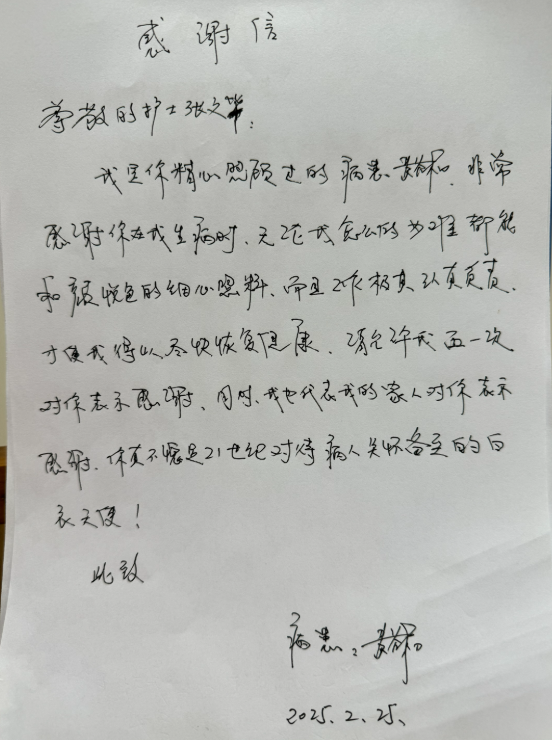 感谢信
尊敬的护士张文苹:
我是你精心照顾过的病患 非常
感谢你在我生病时,无论我怎么的为难都能
和颜悦色的细心照料,而且工作极其认真负责,
才使我得以尽快恢复健康,请允许我再一次
对你表示感谢,同时,我也代表我的家人对你表示
感谢,你真不愧是21世纪对待病人关怀备至的白
衣天使!
此致
病患:
2025.2.25、